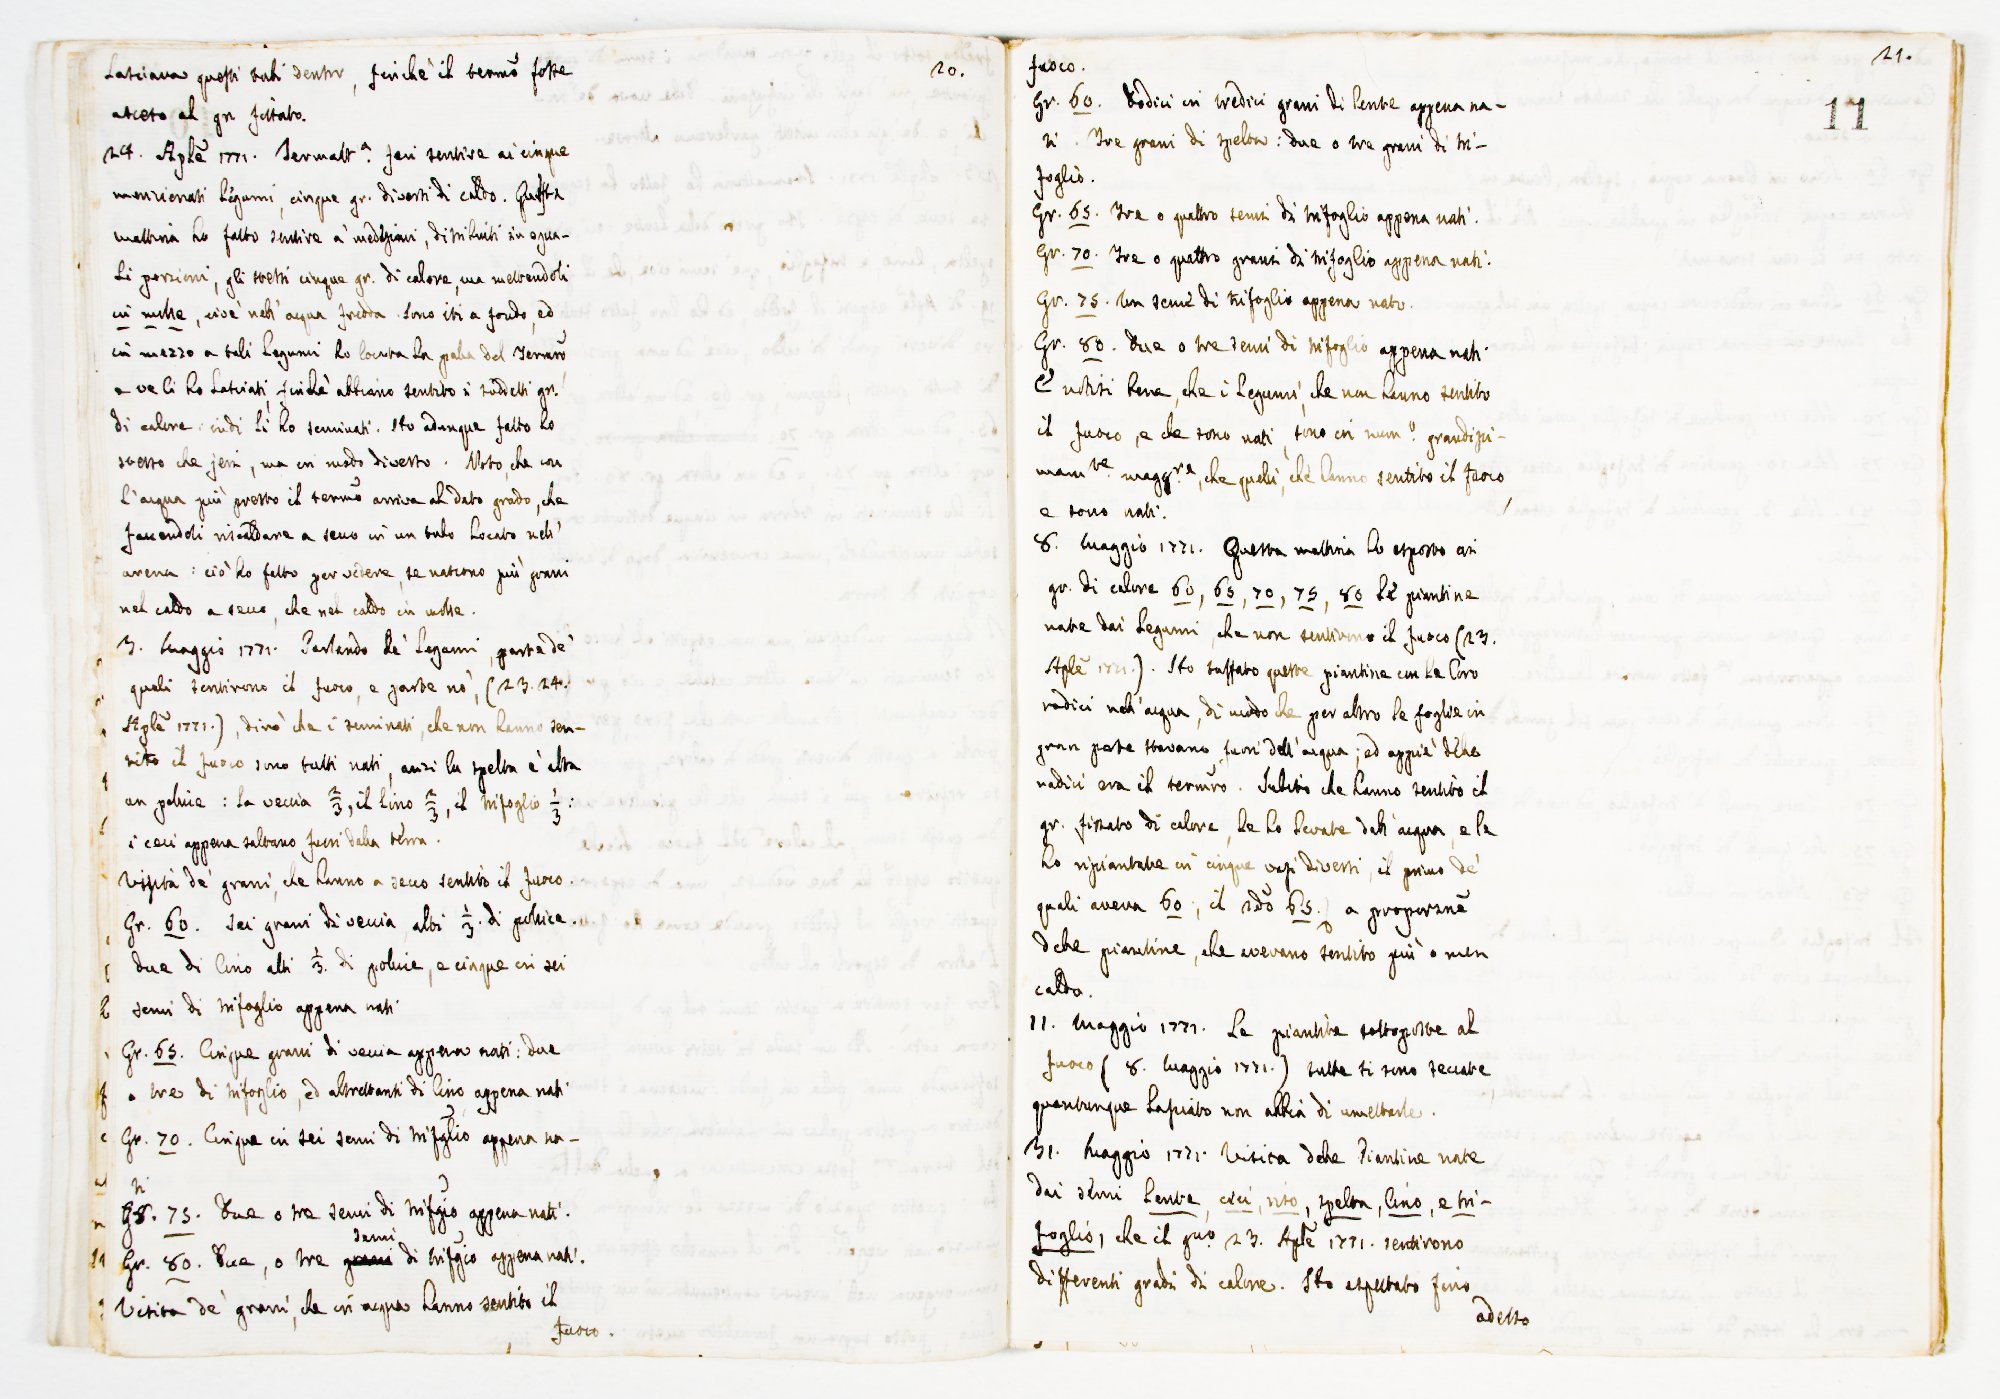 20.
Lasciava questi tubi dentro, finchè il termō fosse
asceso al gr. fissato.
24. Aplē 1771. Jermatt.ª feci sentire ai cinque
menzionati Legumi, cinque gr. diversi di caldo. Questa
mattina ho fatto sentire a' medesimi, distribuiti in egua-
li porzioni, gli stessi cinque gr. di calore, ma mettendoli
in molle, cioè nell' acqua fredda. Sono iti a fondo, ed
in mezzo a tali Legumi ho locata la palla del Termrō
e ve li ho lasciati finchè abbiano sentito i suddetti gr.
di calore. indi li ho seminati. Ho adunque fatto lo
stesso che jeri, ma in modo diverso. Noto, che con
l'acqua più presto il termō arriva al dato grado, che
facendoli riscaldare a secco in un tubo locato nell'
arena: ciò ho fatto per vedere, se nascono più grani
nel caldo a secco, che nel caldo in molle.
3. Maggio 1771. Parlando de' Legumi, parte de'
quali sentirono il fuoco, e parte nò, (23. 24.
Aplē 1771.), dirò che i seminati, che non hanno sen-
tito il fuoco sono tutti nati, anzi la spelta è alta
un pollice: la veccia 2/3, il lino 2/3, il trifoglio 1/3:
i ceci appena saltano fuori dalla terra.
Visita de' grani, che hanno a secco sentito il fuoco.
Gr. 60. Sei grani di veccia alti 1/3. di pollice.
due di lino alti 1/3. di pollice, e cinque in sei
semi di trifoglio appena nati
Gr. 65. Cinque grani di veccia appena nati: due
o tre di trifoglio, ed altrettanti di lino appena nati
Gr. 70. Cinque in sei semi di trifglio appena na-
ti
Gr. 75. Due o tre semi di trifgio appena nati.
semi
Gr. 80. Due, o tre grani di trifgio appena nati.
Visita de' grani, che in acqua hanno sentito il
fuoco.
21.
11
fuoco.
Gr. 60. Dodici in tredici grani di lente appena na-
ti. Tre grani di spelta: due o tre grani di tri-
foglio.
Gr. 65. Tre o quattro semi di trifoglio appena nati.
Gr. 70. Tre o quattro grani di trifoglio appena nati.
Gr. 75. Un seme di trifoglio appena nato.
Gr. 80. Due o tre semi di trifoglio appena nati.
E' notisi bene, che i Legumi, che non hanno sentito
il fuoco, e che sono nati, sono in num.º grandissi-
mam.te magg.re, che quelli, che hanno sentito il fuoco
e sono nati.
8. Maggio 1771. Questa mattina ho esposto ai
gr. di calore 60, 65, 70, 75, 80 le piantine
nate dai Legumi, che non sentirono il fuoco (23.
Aplē 1771.). Ho tuffato queste piantine con le loro
radici nell' acqua, di modo che per altro le foglie in
gran parte stavano fuori dell' acqua; ed appiè delle
radici era il termrō. Subito che hanno sentito il
gr. fissato di calore, le ho levate dall' acqua, e le
ho ripiantate in cinque vasi diversi, il primo de'
quali aveva 60, il 2dō 65. a proporznē
delle piantine, che avevano sentito più o men
caldo.
11. Maggio 1771. Le piantine sottoposte al
fuoco (8. Maggio 1771.) tutte si sono seccate
quantunque lasciato non abbia di umettarle.
31. Maggio 1771. Visita delle Piantine nate
dai semi Lente, ceci, riso, spelta, lino, e tri-
foglio, che il gno. 23. Aplē 1771. sentirono
differenti gradi di calore. Ho aspettato fino
adesso